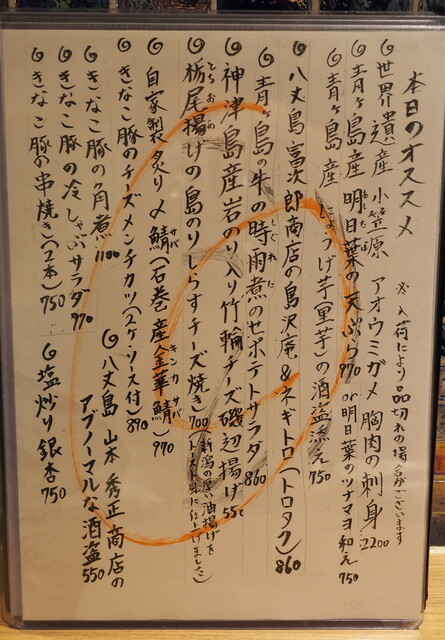 本日のオススメ
※入荷により品切れの場合がございます
◎世界遺産 小笠原 アオウミガメ 胸肉の刺身 2200
◎青ヶ島産 明日葉の天ぷら 970 or 明日葉のツナマヨ和え 750
◎青ヶ島産 にょうげ芋(里芋)の酒盗添え 750
◎八丈島 富次郎商店の島沢庵&ネギトロ(トロタク) 860
◎青ヶ島の牛の時雨煮のせポテトサラダ 860
◎神津島産岩のり入り竹輪チーズ磯辺揚げ 550
◎栃尾揚げの島のりしらすチーズ焼き 700 (新潟の厚い油揚げをトースト風に仕上げました)
◎自家製炙り〆鯖(石巻産金華鯖) 970
◎きなこ豚のチーズメンチカツ(2ケ・ソース付) 890
◎きなこ豚の角煮 1100
◎きなこ豚の冷しゃぶサラダ 970
◎きなこ豚の串焼き(2本) 750
◎八丈島 山本秀正商店の
アブノーマルな酒盗 550
◎塩炒り銀杏 750